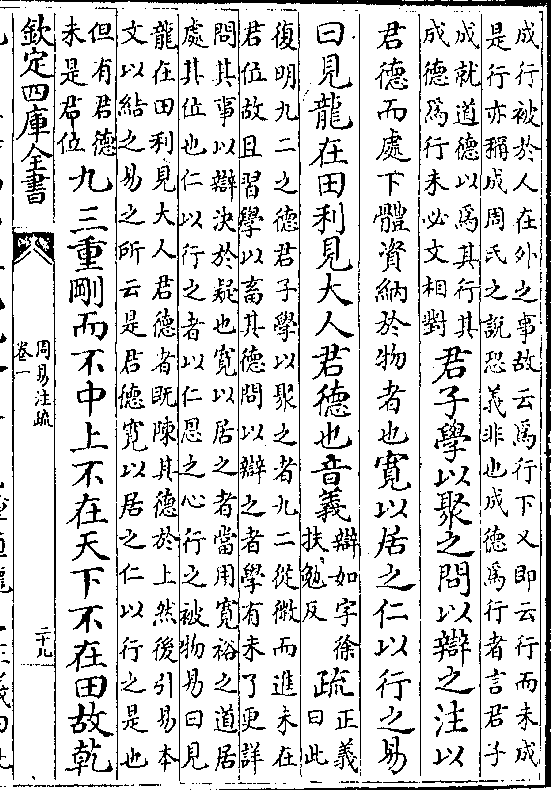 成行被於人在外之事故云爲行下又即云行而未成
是行亦稱成周氏之說恐義非也成德爲行者言君子
成就道德以爲其行其
成德爲行未必文相對
君子學以聚之問以辯之注以
君德而處下體資納於物者也寛以居之仁以行之易
曰見龍在田利見大人君德也音義
辯如字徐
扶勉反
疏
正義
曰此
復明九二之德君子學以聚之者九二從微而進未在
君位故且習學以畜其德問以辯之者學有未了更詳
問其事以辯決於疑也寛以居之者當用寛裕之道居
處其位也仁以行之者以仁恩之心行之被物易曰見
龍在田利見大人君德者既陳其德於上然後引易本
文以結之易之所云是君德寛以居之仁以行之是也
但有君德
未是君位
九三重剛而不中上不在天下不在田故乾
欽定四庫全書
周易注疏
卷一
二十九